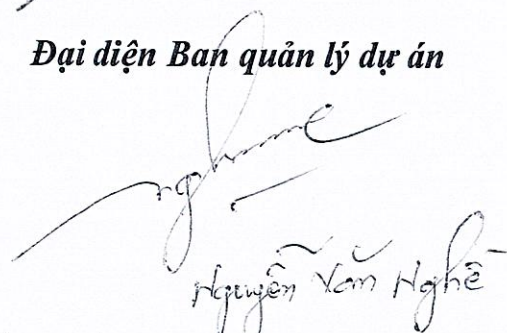 Đại diện Ban quản lý dự án
Nguyễn Văn Nghề